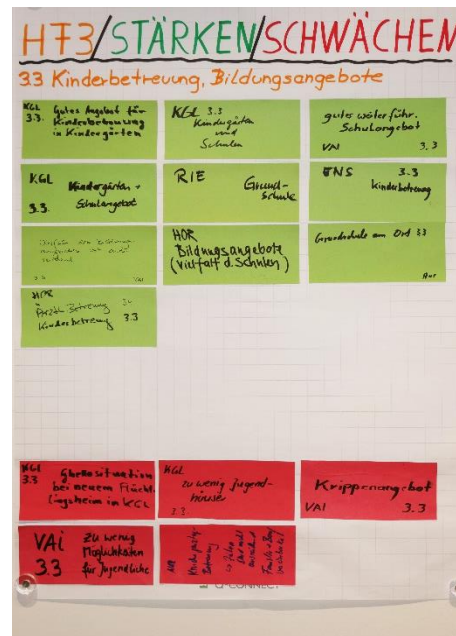 HF3/STÄRKEN/SCHWÄCHEN
3.3 Kinderbetreuung, Bildungsangebote
KGL Gutes Angebot für
3.3. Kinderbetreuung
in Kindergärten
KGL 3.3
Kindergärten
und
Schulen
gutes weiterführ.
Schulangebot
VAI 3.3
KGL Kindergärten +
3.3. Schulangebot
RIE Grund-
schule
ENS 3.3
Kinderbetreuung
3.3 VAI
HOR
Bildungsangebote
(Vielfalt d. Schulen)
Grundschule am Ort 3.3
Aur
Ärztl. Betreuung
Kinderbetreuung 3.3
KGL Ghettosituation
3.3 bei neuem Flücht-
lingsheim in KGL
KGL
zu wenig Jugend-
häuser
3.3
Krippenangebot
VAI 3.3
VAI zu wenig
3.3 Möglichkeiten
für Jugendliche
Betreuung
Q-CONNECT